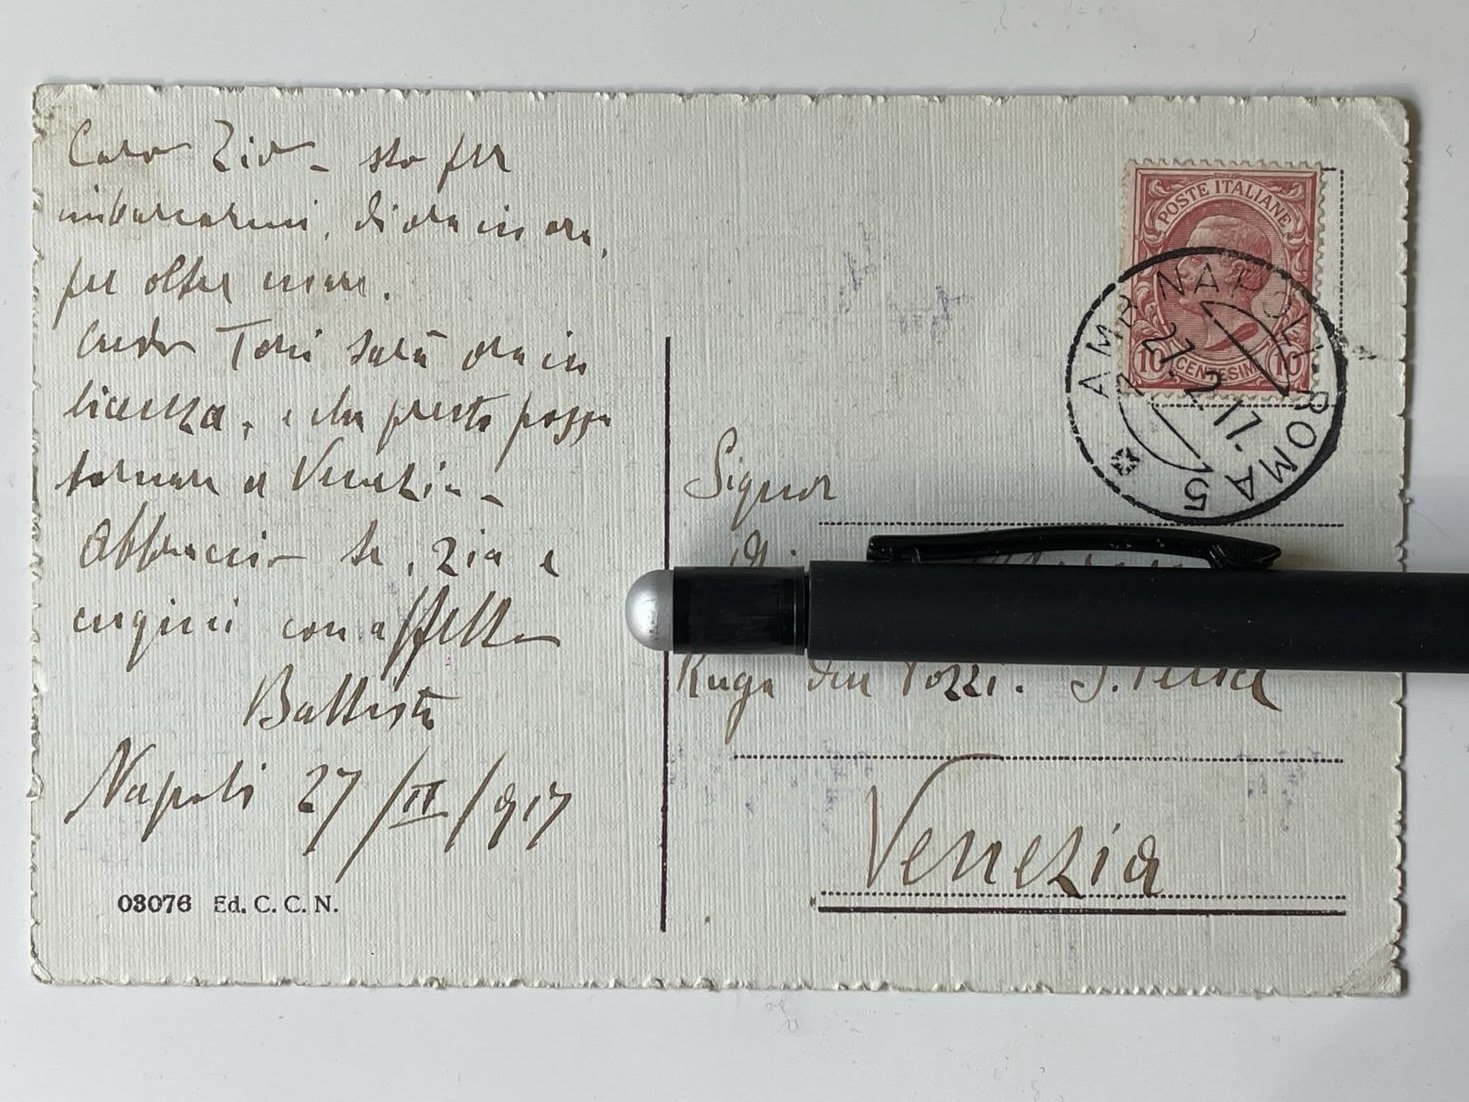 Caro Zio - sto per
imbarcarmi, di ora in ora,
per oltre mare.
Credo Toni sarà ora in
licenza, e che presto possa
tornare a Venezia -
Abbraccio te, zia e
cugini con affetto
Battista
Napoli 27/II/917
03076 Ed. C. C. N.
POSTE ITALIANE
10 CENTESIMI 10
AMB NAPOLI-ROMA 5
27.2.17.
Signor
Ruga Pozzi. S.
Venezia